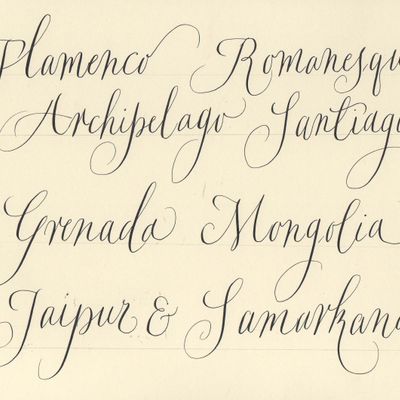 Flamenco Romanesqu
Archipelago Santiago
Grenada Mongolia
Jaipur & Samarkand